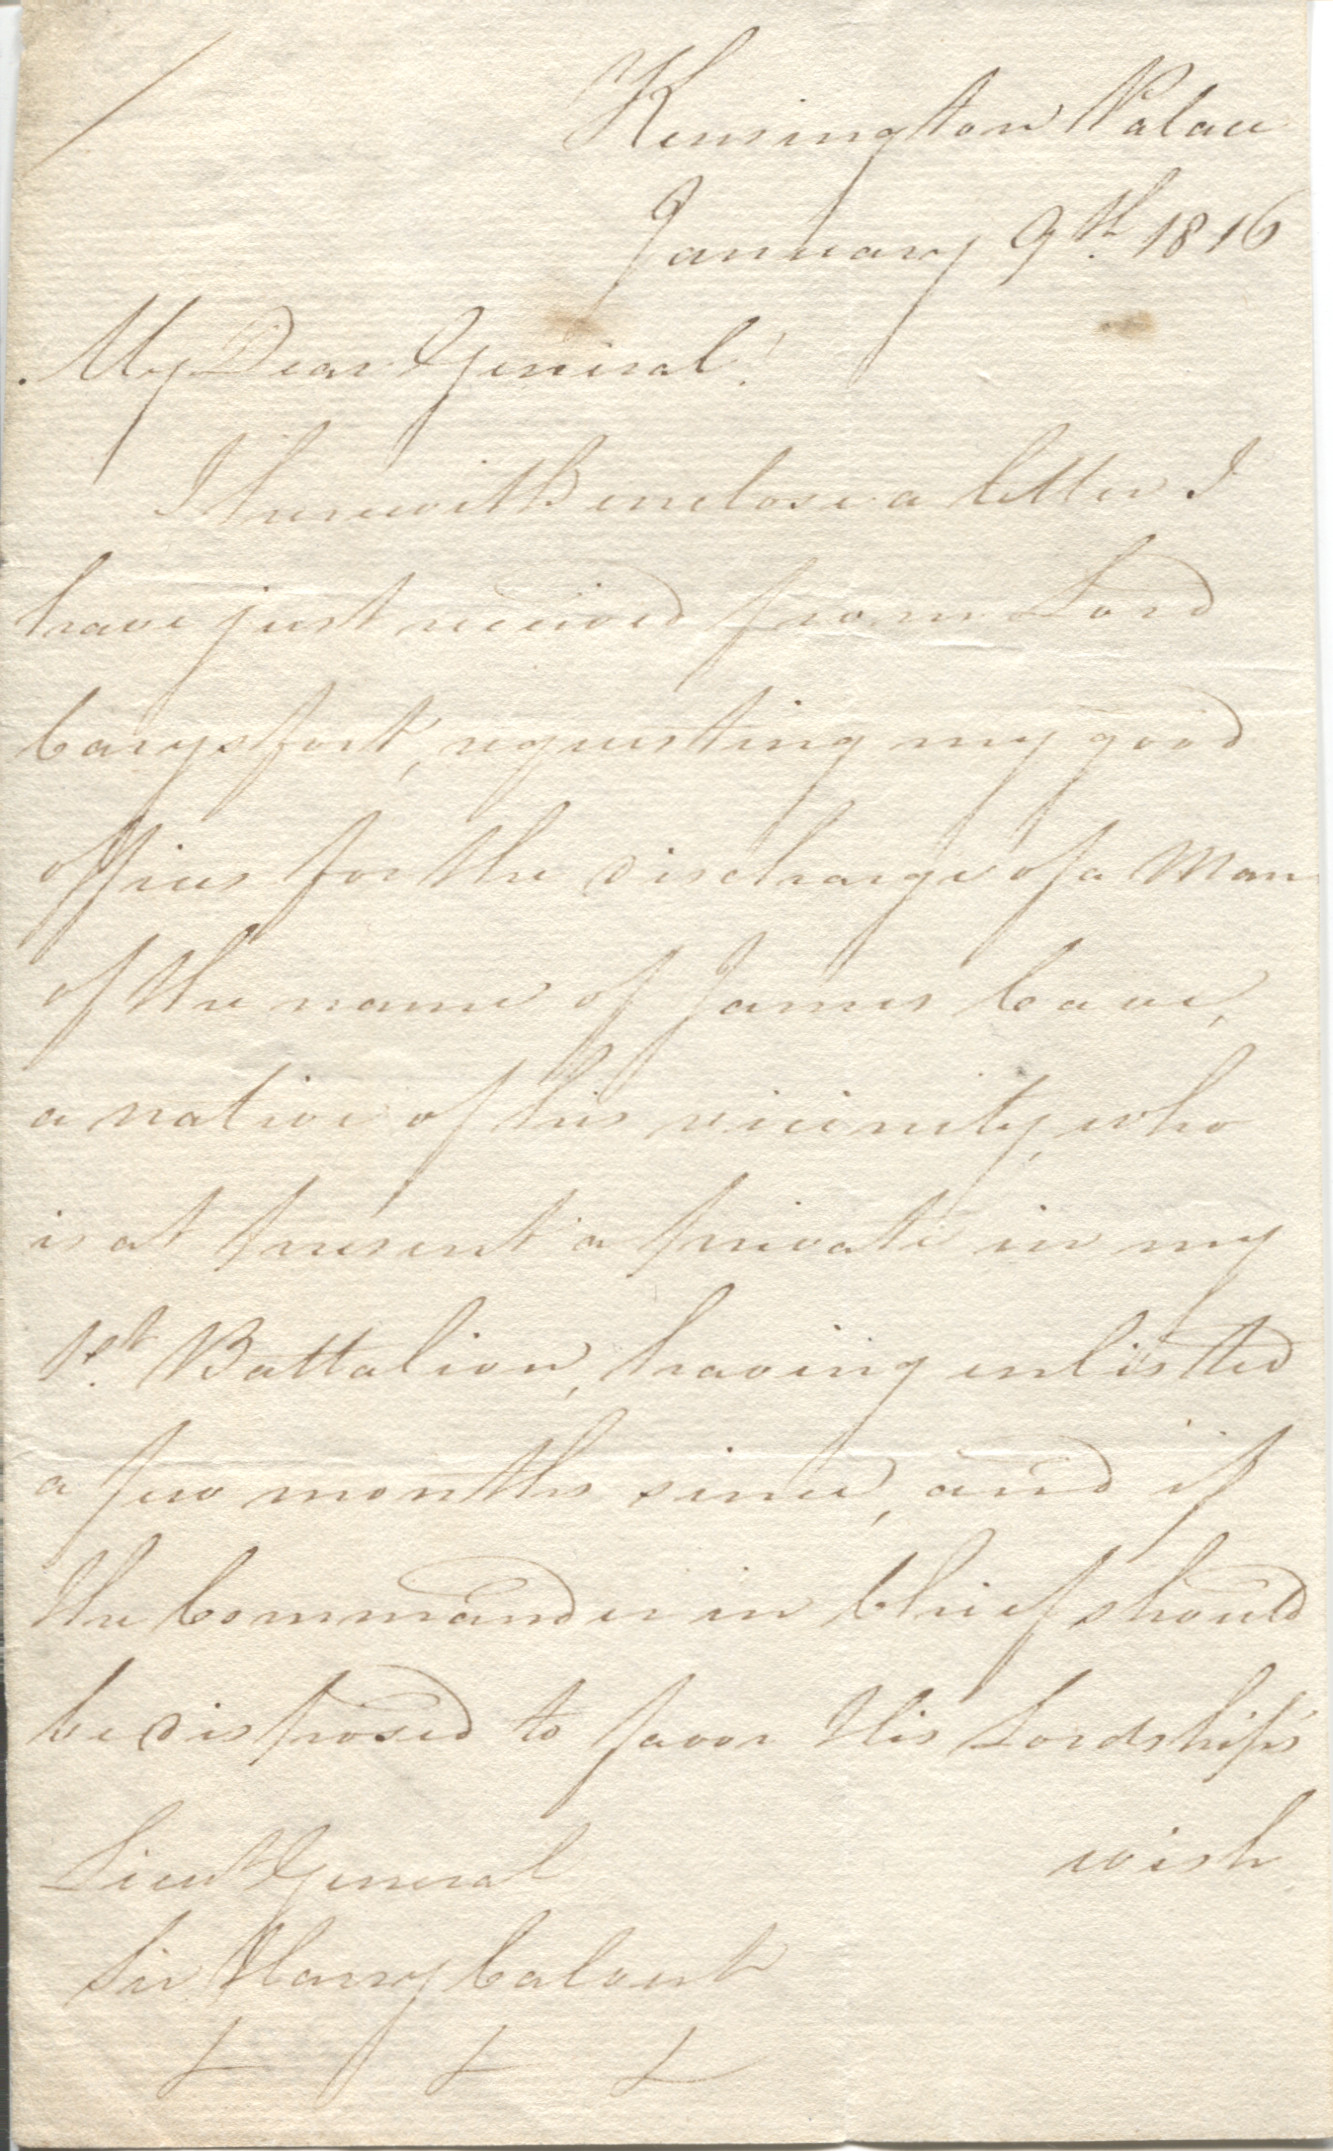 Kensington Palace
January 9th. 1816
My Dear General!
I herewith enclose a letter I
have just received from Lord
Carysfort, requesting my good
offices for the discharge of a Man
of the name of James Cave,
a native of his vicinity, who
is at present a private in my
1st. Battalion, having enlisted
a few months since, and if
the Commander in Chief should
be disposed to favor His Lordship's
wish
Lieut General
Sir Harry Calvert